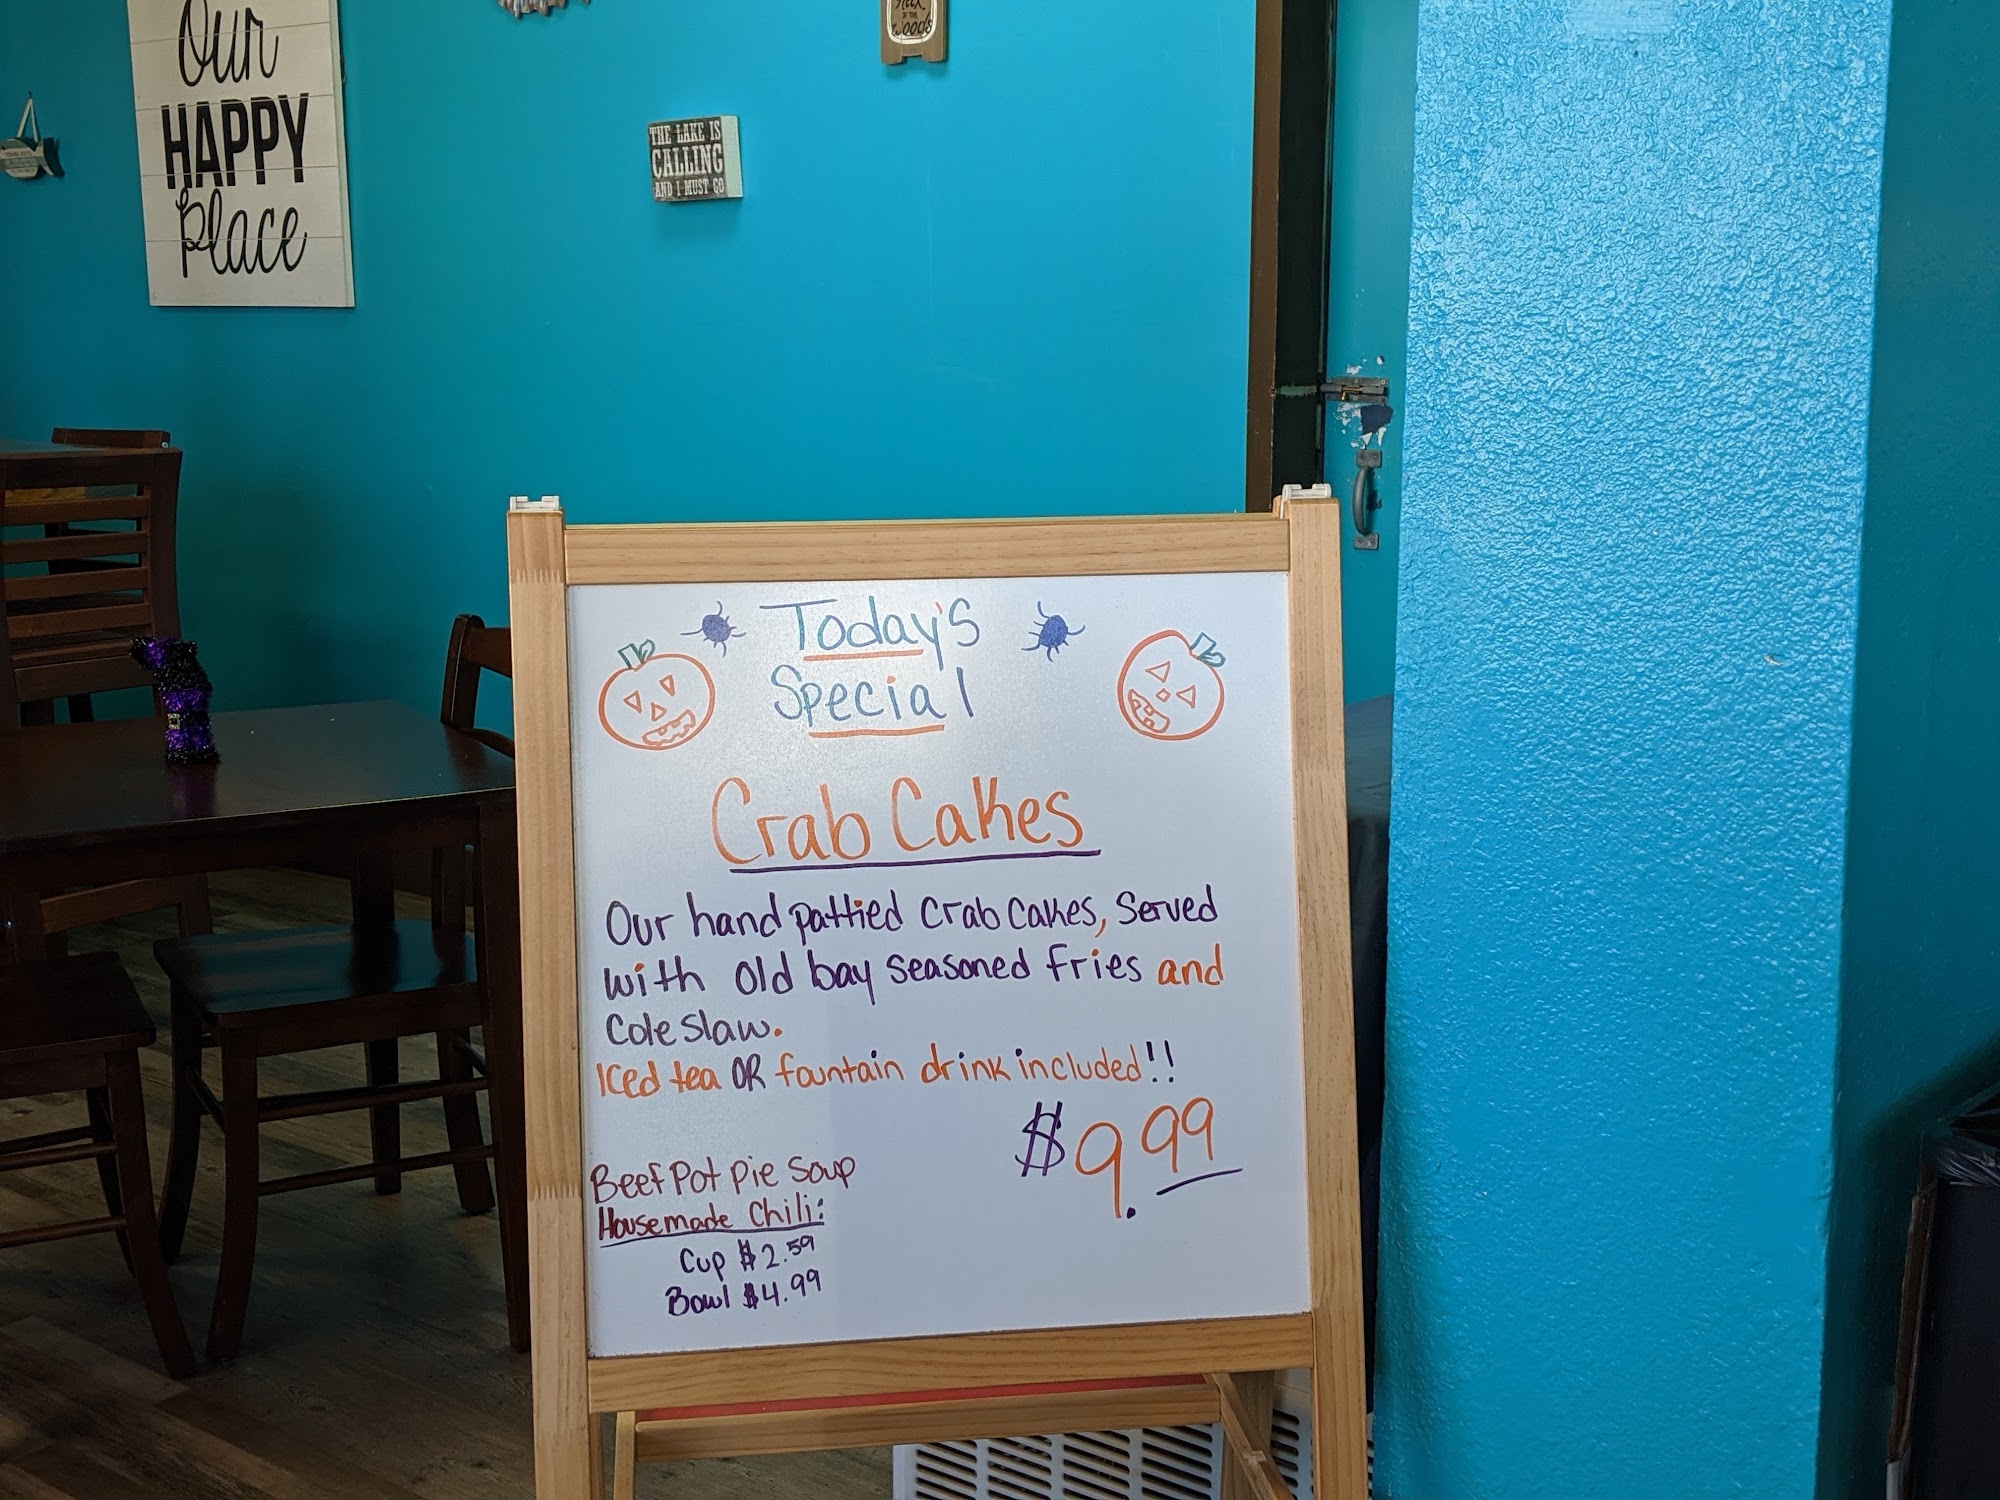 Our
HAPPY
Place
THE LAKE IS
CALLING
AND I MUST GO
OF THE
Woods
Today's
Special
Crab Cakes
Our hand pattied Crab Cakes, Served
with old bay seasoned fries and
Cole slaw.
Iced tea OR fountain drink included!!
$9.99
Beef Pot Pie Soup
Housemade Chili:
Cup $2.59
Bowl $4.99